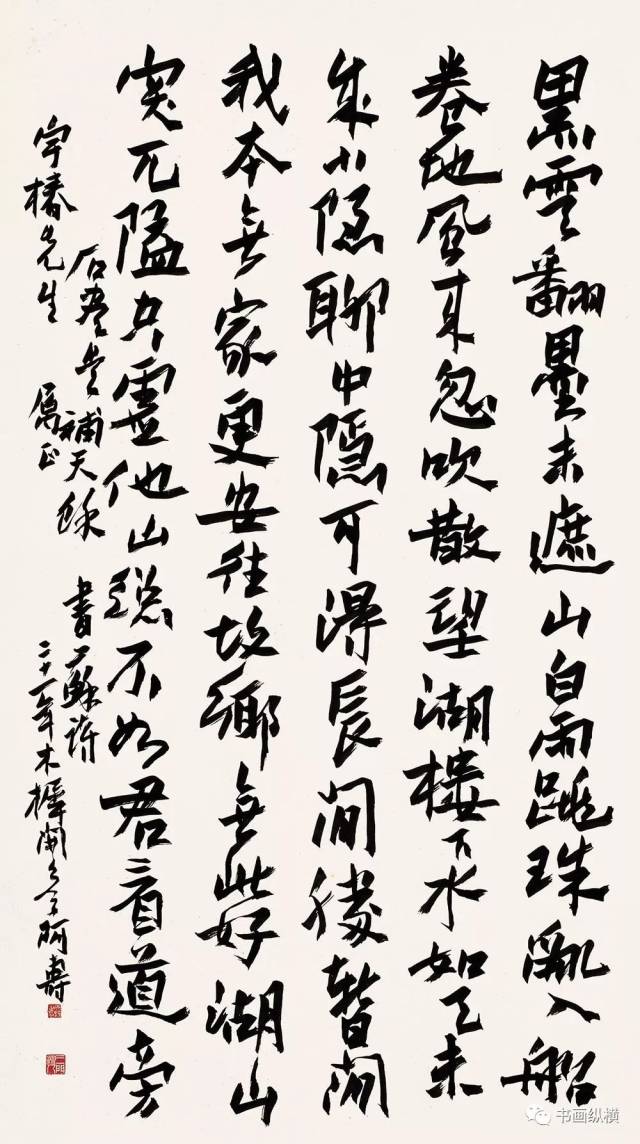 黑雲翻墨未遮山白雨跳珠亂入船
卷地風来忽吹散望湖樓下水如天未
成小隱聊中隱可得長閒勝暫閒
我本無家更安往故鄉無此好湖山
突兀隘空虛他山總不如君看道旁
石盡是補天餘 書蘇詩
宇椿先生 屬正
二十一年木樨開 阿壽
书画纵横